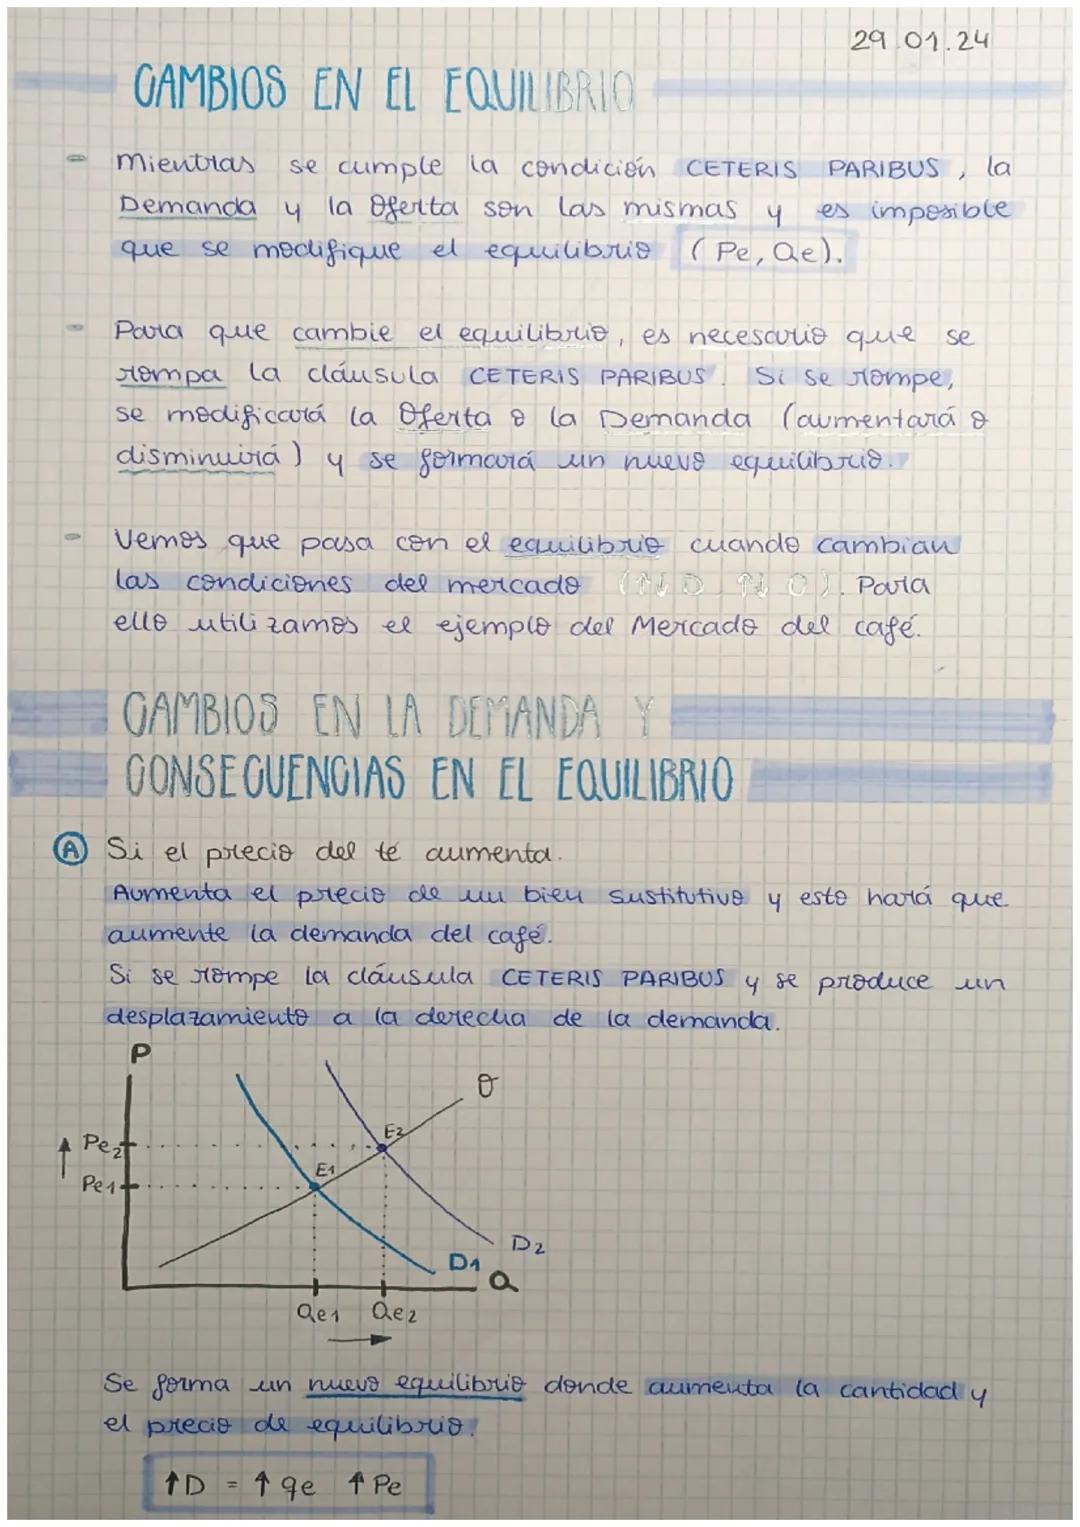 29.01.24
CAMBIOS EN EL EQUILIBRIO
- Mientras se cumple la condición CETERIS PARIBUS, la
Demanda y la Oferta son las mismas y es imposible
que se modifique el equilibrio (Pe, Qe).
- Para que cambie el equilibrio, es necesario que se
rompa la cláusula CETERIS PARIBUS. Si se rompe,
se modificará la Oferta o la Demanda (aumentará o
disminuirá) y se formará un nuevo equilibrio.
- Vemos que pasa con el equilibrio cuando cambian
las condiciones del mercado (↑↓ D ↑↓ O). Para
ello utilizamos el ejemplo del Mercado del café.
CAMBIOS EN LA DEMANDA Y
CONSECUENCIAS EN EL EQUILIBRIO
A Si el precio del té aumenta.
Aumenta el precio de un bien sustitutivo y esto hará que
aumente la demanda del café.
Si se rompe la cláusula CETERIS PARIBUS y se produce un
desplazamiento a la derecha de la demanda.
P
O
↑ Pe2
E2
Pe1
E1
D2
D1
Q
Qe1 Qe2
→
Se forma un nuevo equilibrio donde aumenta la cantidad y
el precio de equilibrio.
↑D = ↑ qe ↑ Pe